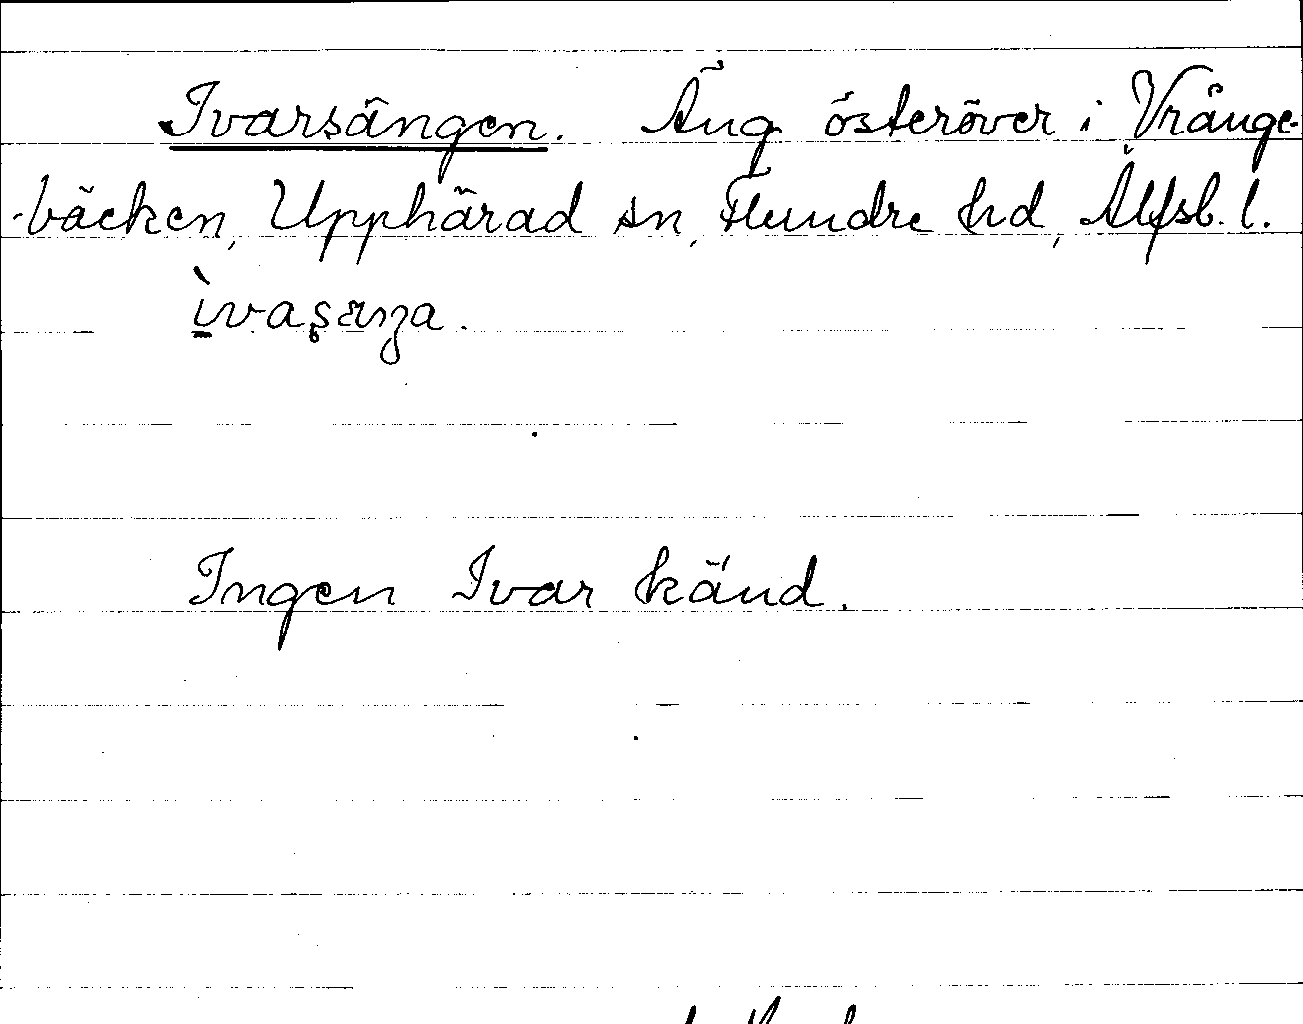 Ivarsängen. Äng österöver i Vränge-
-bäcken, Upphärad sn, Flundre hd, Älfsb. l.
ìvaʂæŋa.
Ingen Ivar känd.